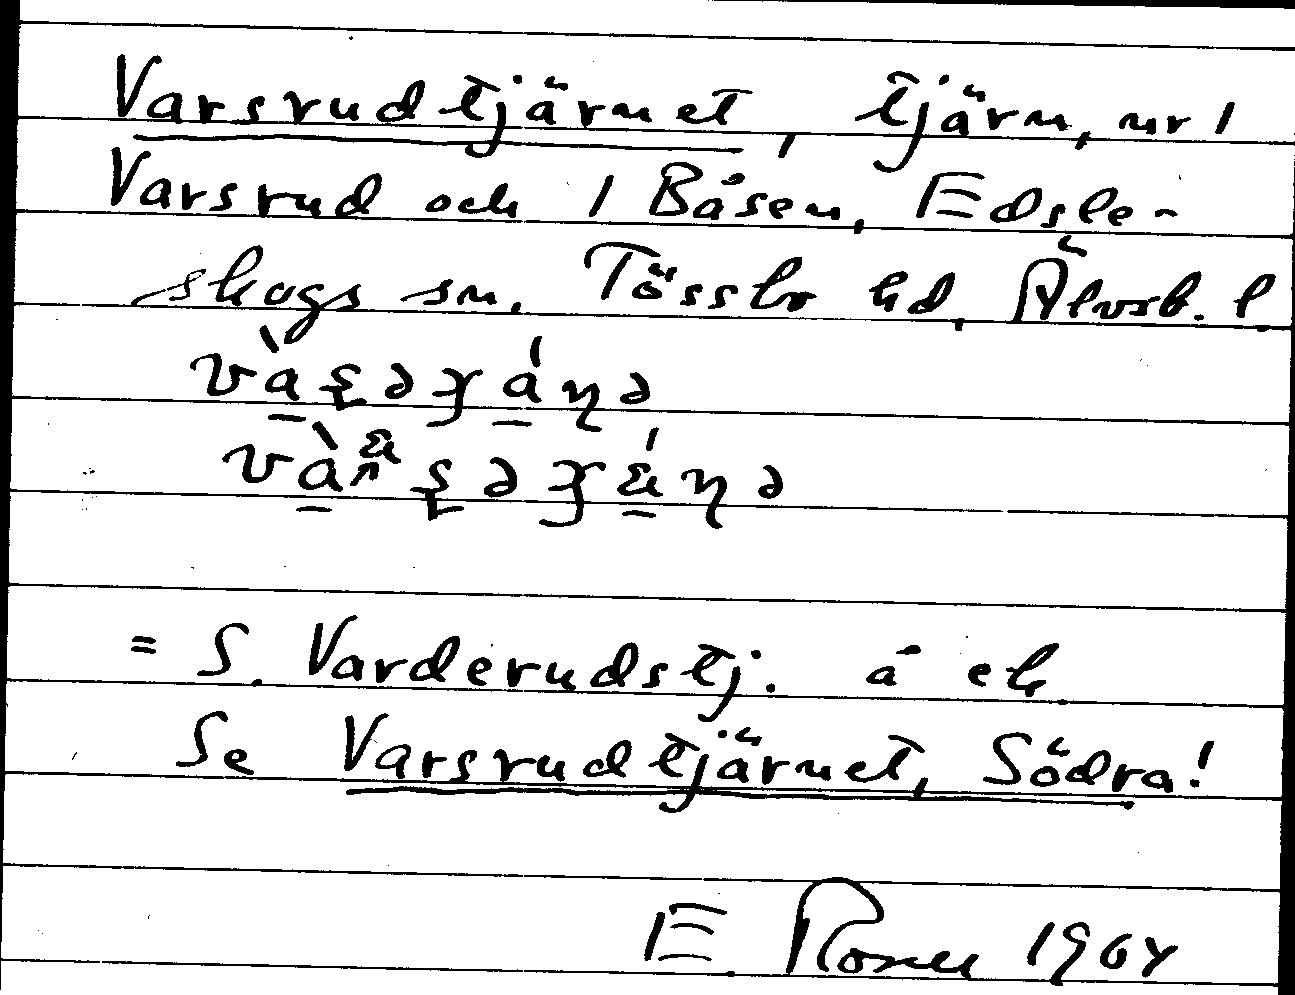 Varsrudtjärnet, tjärn, nr 1
Varsrud och 1 Båsen, Edsle-
skogs sn. Tössbo hd, Älvsb. l.
= S. Varderudstj. å ek
Se Varsrudtjärnet, Södra!
E. 1964